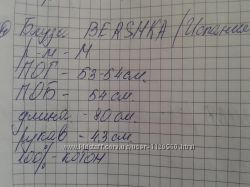 Блуза BERSHKA /Испания
Л - М - М
ПОГ - 53-54см.
ПОБ - 54 см.
длина - 70 см.
рукав - 43 см.
100% - котон